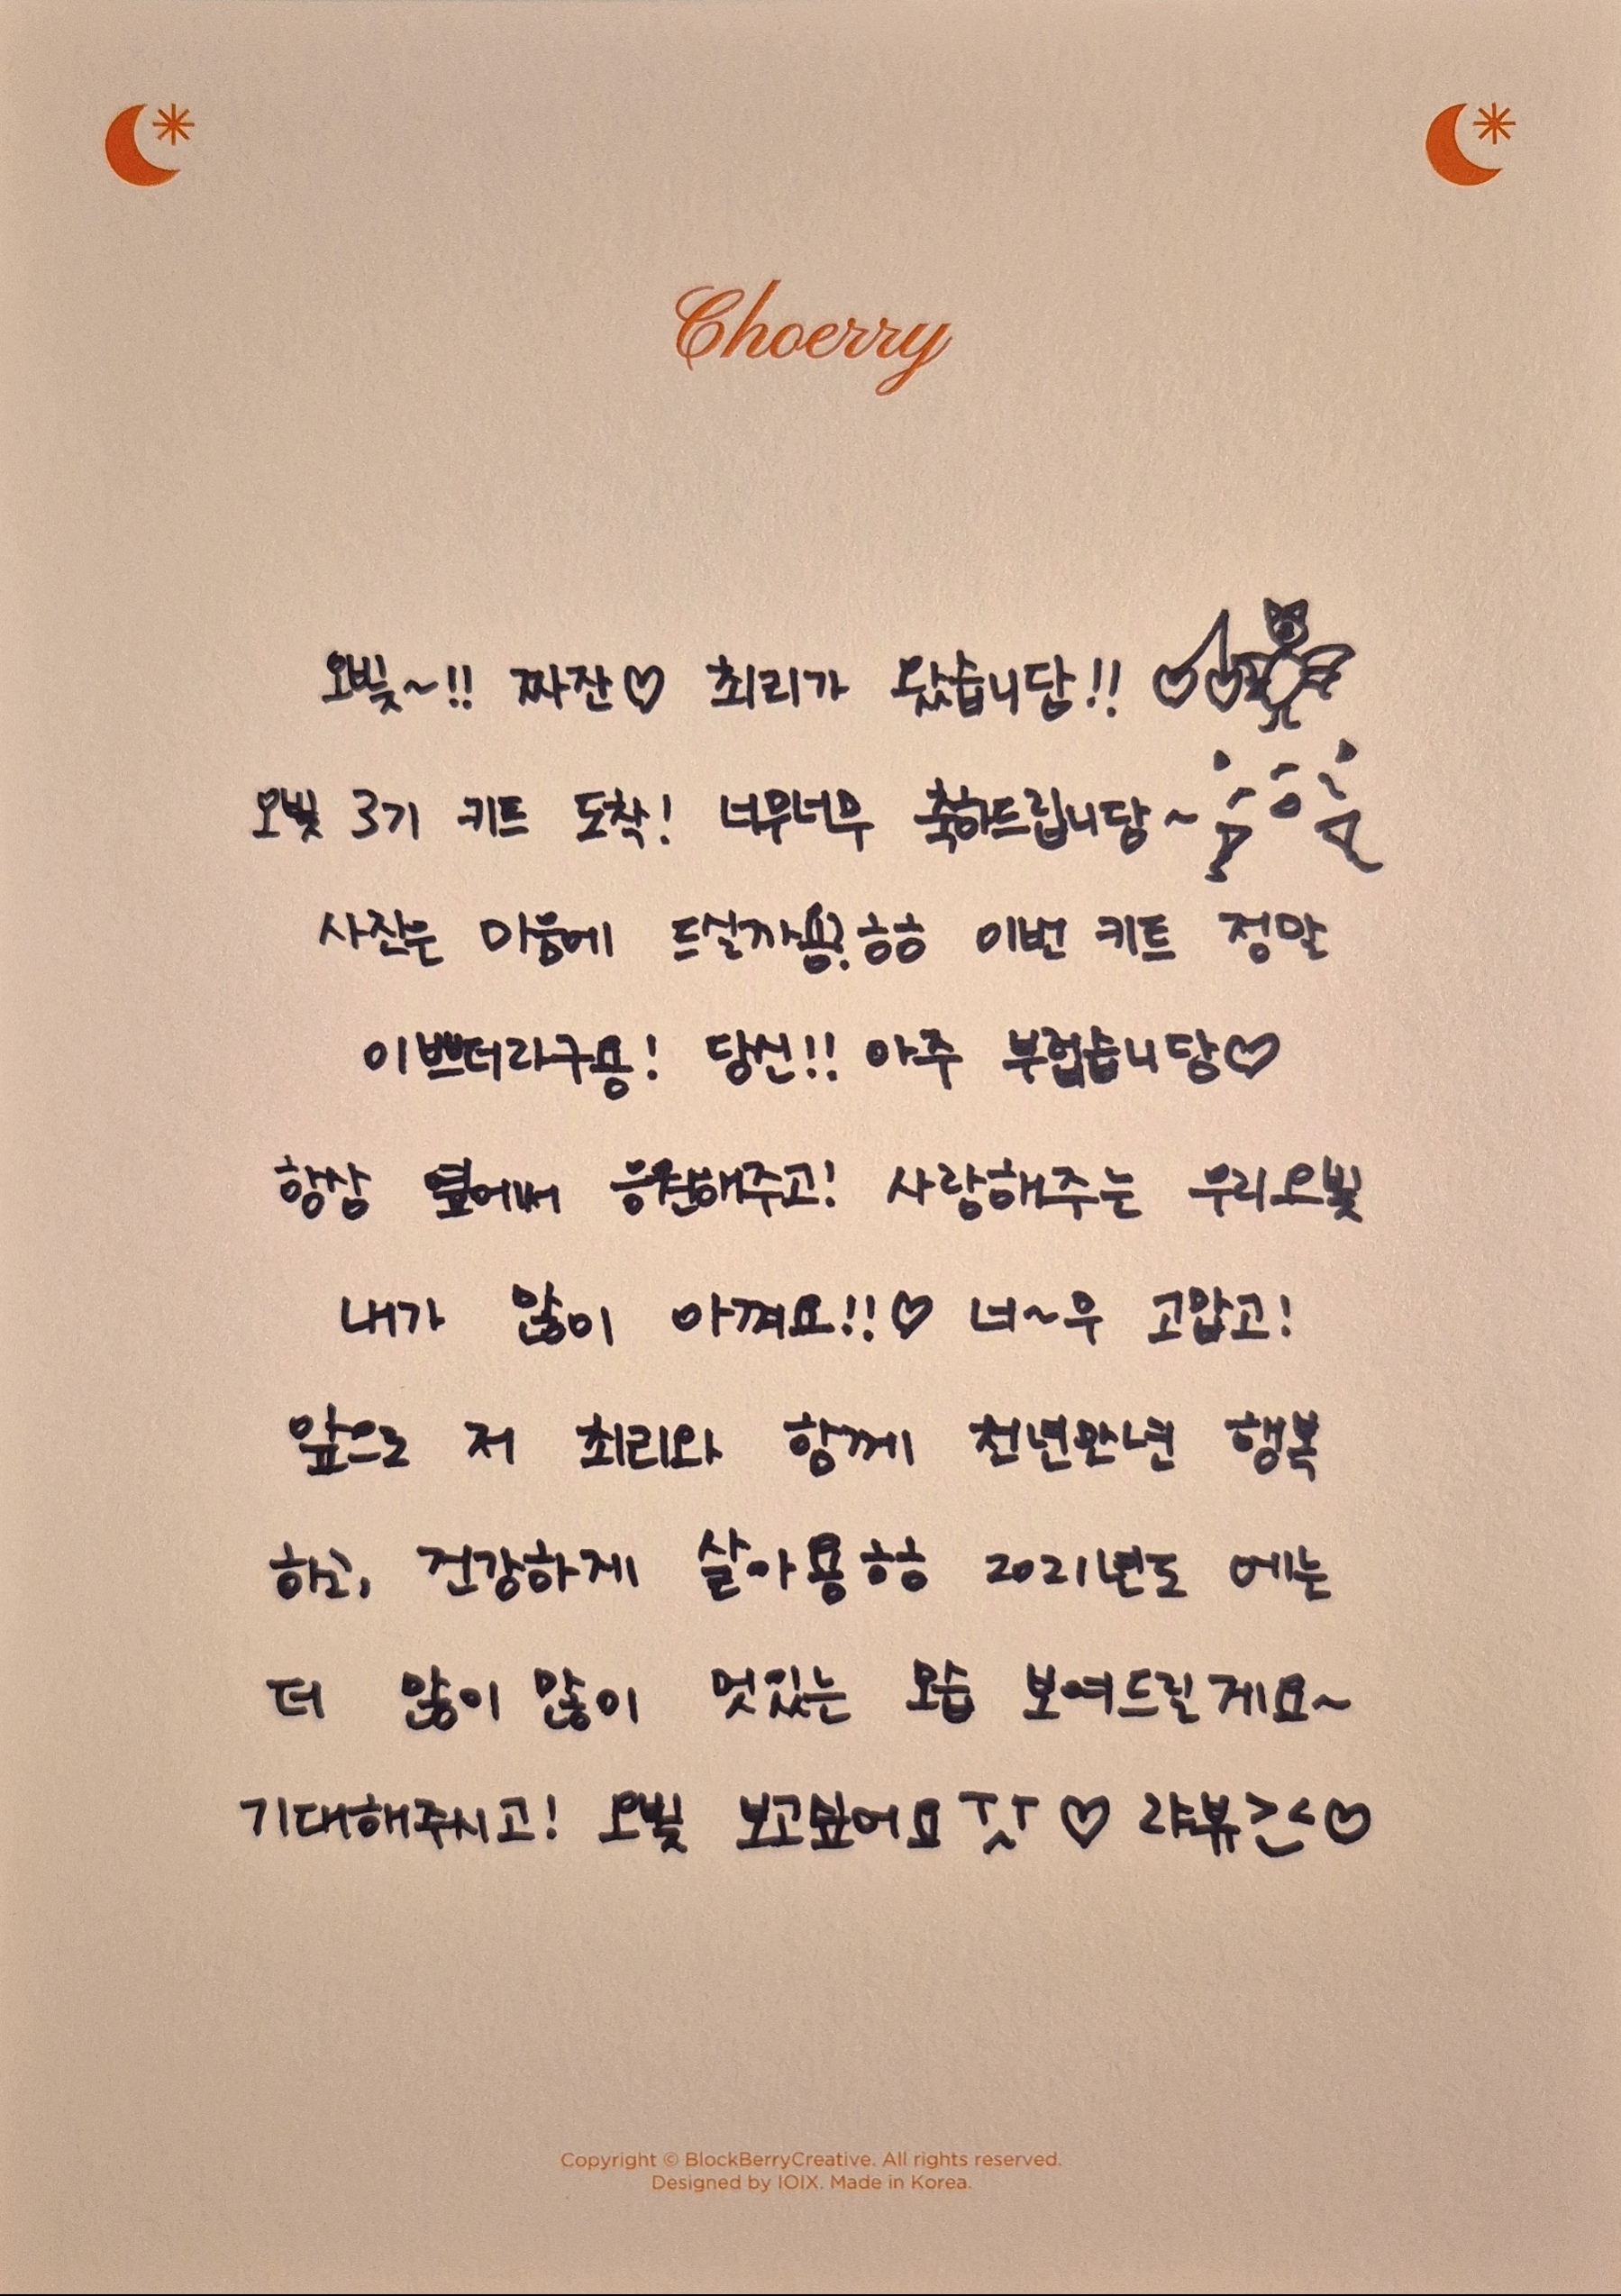 Choerry
오빛~!! 짜잔♡ 최리가 왔습니담!!
오빛 3기 키트 도착! 너무너무 축하드립니당~
사진은 마음에 드실까용? ㅎㅎ 이번 키트 정말
이쁘더라구용! 당신!! 아주 부럽습니당♡
항상 옆에써 응원해주고! 사랑해주는 우리오빛
내가 많이 아껴요!!♡ 너~무 고맙고!
앞으로 저 최리와 함께 천년만년 행복
하고, 건강하게 살아용ㅎㅎ 2021년도 에는
더 많이 많이 멋있는 모습 보여드릴게요~
기대해주시고! 오빛 보고싶어요 ㅜㅅㅜ ♡ 랴뷰><♡
Copyright © BlockBerryCreative. All rights reserved.
Designed by IOIX. Made in Korea.